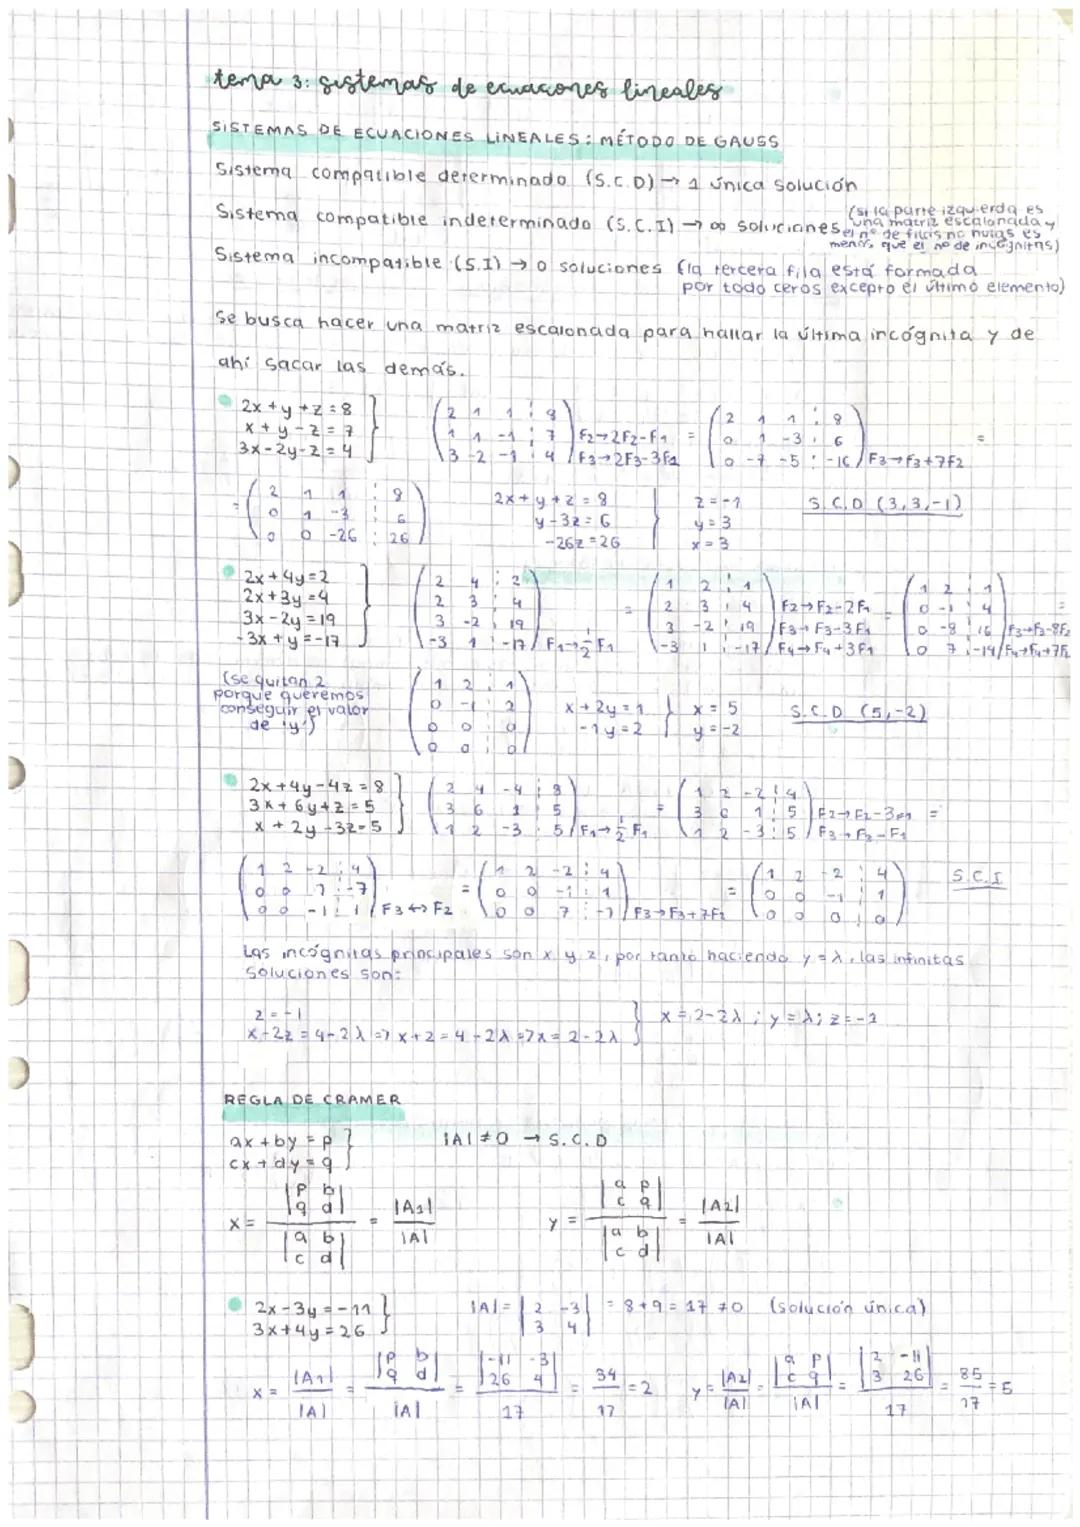 tema 3: sistemas de ecuaciones lineales
SISTEMAS DE ECUACIONES LINEALES: MÉTODO DE GAUSS
Sistema compatible determinado (S.C.D) → 1 única solución
Sistema compatible indeterminado (S.C.I) → ∞ soluciones (si la parte izquierda es una matriz escalonada y el nº de filas no nulas es menor que el nº de incógnitas)
Sistema incompatible (S.I) → 0 soluciones (la tercera fila está formada por todo ceros excepto el último elemento)
Se busca hacer una matriz escalonada para hallar la última incógnita y de
ahí sacar las demás.
2x + y + z = 8
x + y - z = 7
3x - 2y - z = 4
2 1 1 | 8
1 1 -1 | 7 F2→2F2-F1
3 -2 -1 | 4 F3→2F3-3F1
=
2 1 1 | 8
0 1 -3 | 6
0 -7 -5 | -16 F3→F3+7F2
=
= 2 1 1 | 8
0 1 -3 | 6
0 0 -26 | 26
2x + y + z = 8
y - 3z = 6
-26z = 26
z = -1
y = 3
x = 3
S.C.D (3,3,-1)
2x + 4y = 2
2x + 3y = 4
3x - 2y = 19
-3x + y = -17
2 4 | 2
2 3 | 4
3 -2 | 19
-3 1 | -17 F1→1/2 F1
=
1 2 | 1
2 3 | 4 F2→F2-2F1
3 -2 | 19 F3→F3-3F1
-3 1 | -17 F4→F4+3F1
=
1 2 | 1
0 -1 | 4
0 -8 | 16 F3→F3-8F2
0 7 | -14 F4→F4+7F2
=
(se quitan 2
porque queremos
conseguir el valor
de 'y')
1 2 | 1
0 -1 | 2
0 0 | 0
0 0 | 0
x + 2y = 1
-1y = 2
x = 5
y = -2
S.C.D (5,-2)
2x + 4y - 4z = 8
3x + 6y + z = 5
x + 2y - 3z = 5
2 4 -4 | 8
3 6 1 | 5
1 2 -3 | 5 F1→1/2 F1
=
1 2 -2 | 4
3 6 1 | 5 F2→F2-3F1
1 2 -3 | 5 F3→F3-F1
=
1 2 -2 | 4
0 0 7 | -7
0 0 -1 | 1 F3↔F2
=
1 2 -2 | 4
0 0 -1 | 1
0 0 7 | -7 F3→F3+7F2
=
1 2 -2 | 4
0 0 -1 | 1
0 0 0 | 0
S.C.I
Las incógnitas principales son x y z, por tanto haciendo y = λ, las infinitas
soluciones son:
z = -1
x - 2z = 4 - 2λ => x + 2 = 4 - 2λ => x = 2 - 2λ
x = 2 - 2λ ; y = λ ; z = -1
REGLA DE CRAMER
ax + by = p
cx + dy = q
|A| ≠ 0 → S.C.D
x = |p b; q d| / |a b; c d| = |A1| / |A|
y = |a p; c q| / |a b; c d| = |A2| / |A|
2x - 3y = -11
3x + 4y = 26
|A| = |2 -3; 3 4| = 8 + 9 = 17 ≠ 0 (solución única)
x = |A1| / |A| = |p b; q d| / |A| = |-11 -3; 26 4| / 17 = 34/17 = 2
y = |A2| / |A| = |a p; c q| / |A| = |2 -11; 3 26| / 17 = 85/17 = 5